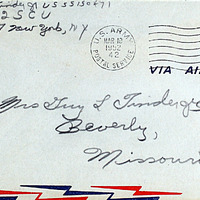 US 55150471
25 C U
New York, NY
U.S. ARMY
MAR 12
1952
42
POSTAL SERVICE
VIA AIR
Mrs Guy L Tindergr
Beverly,
Missouri